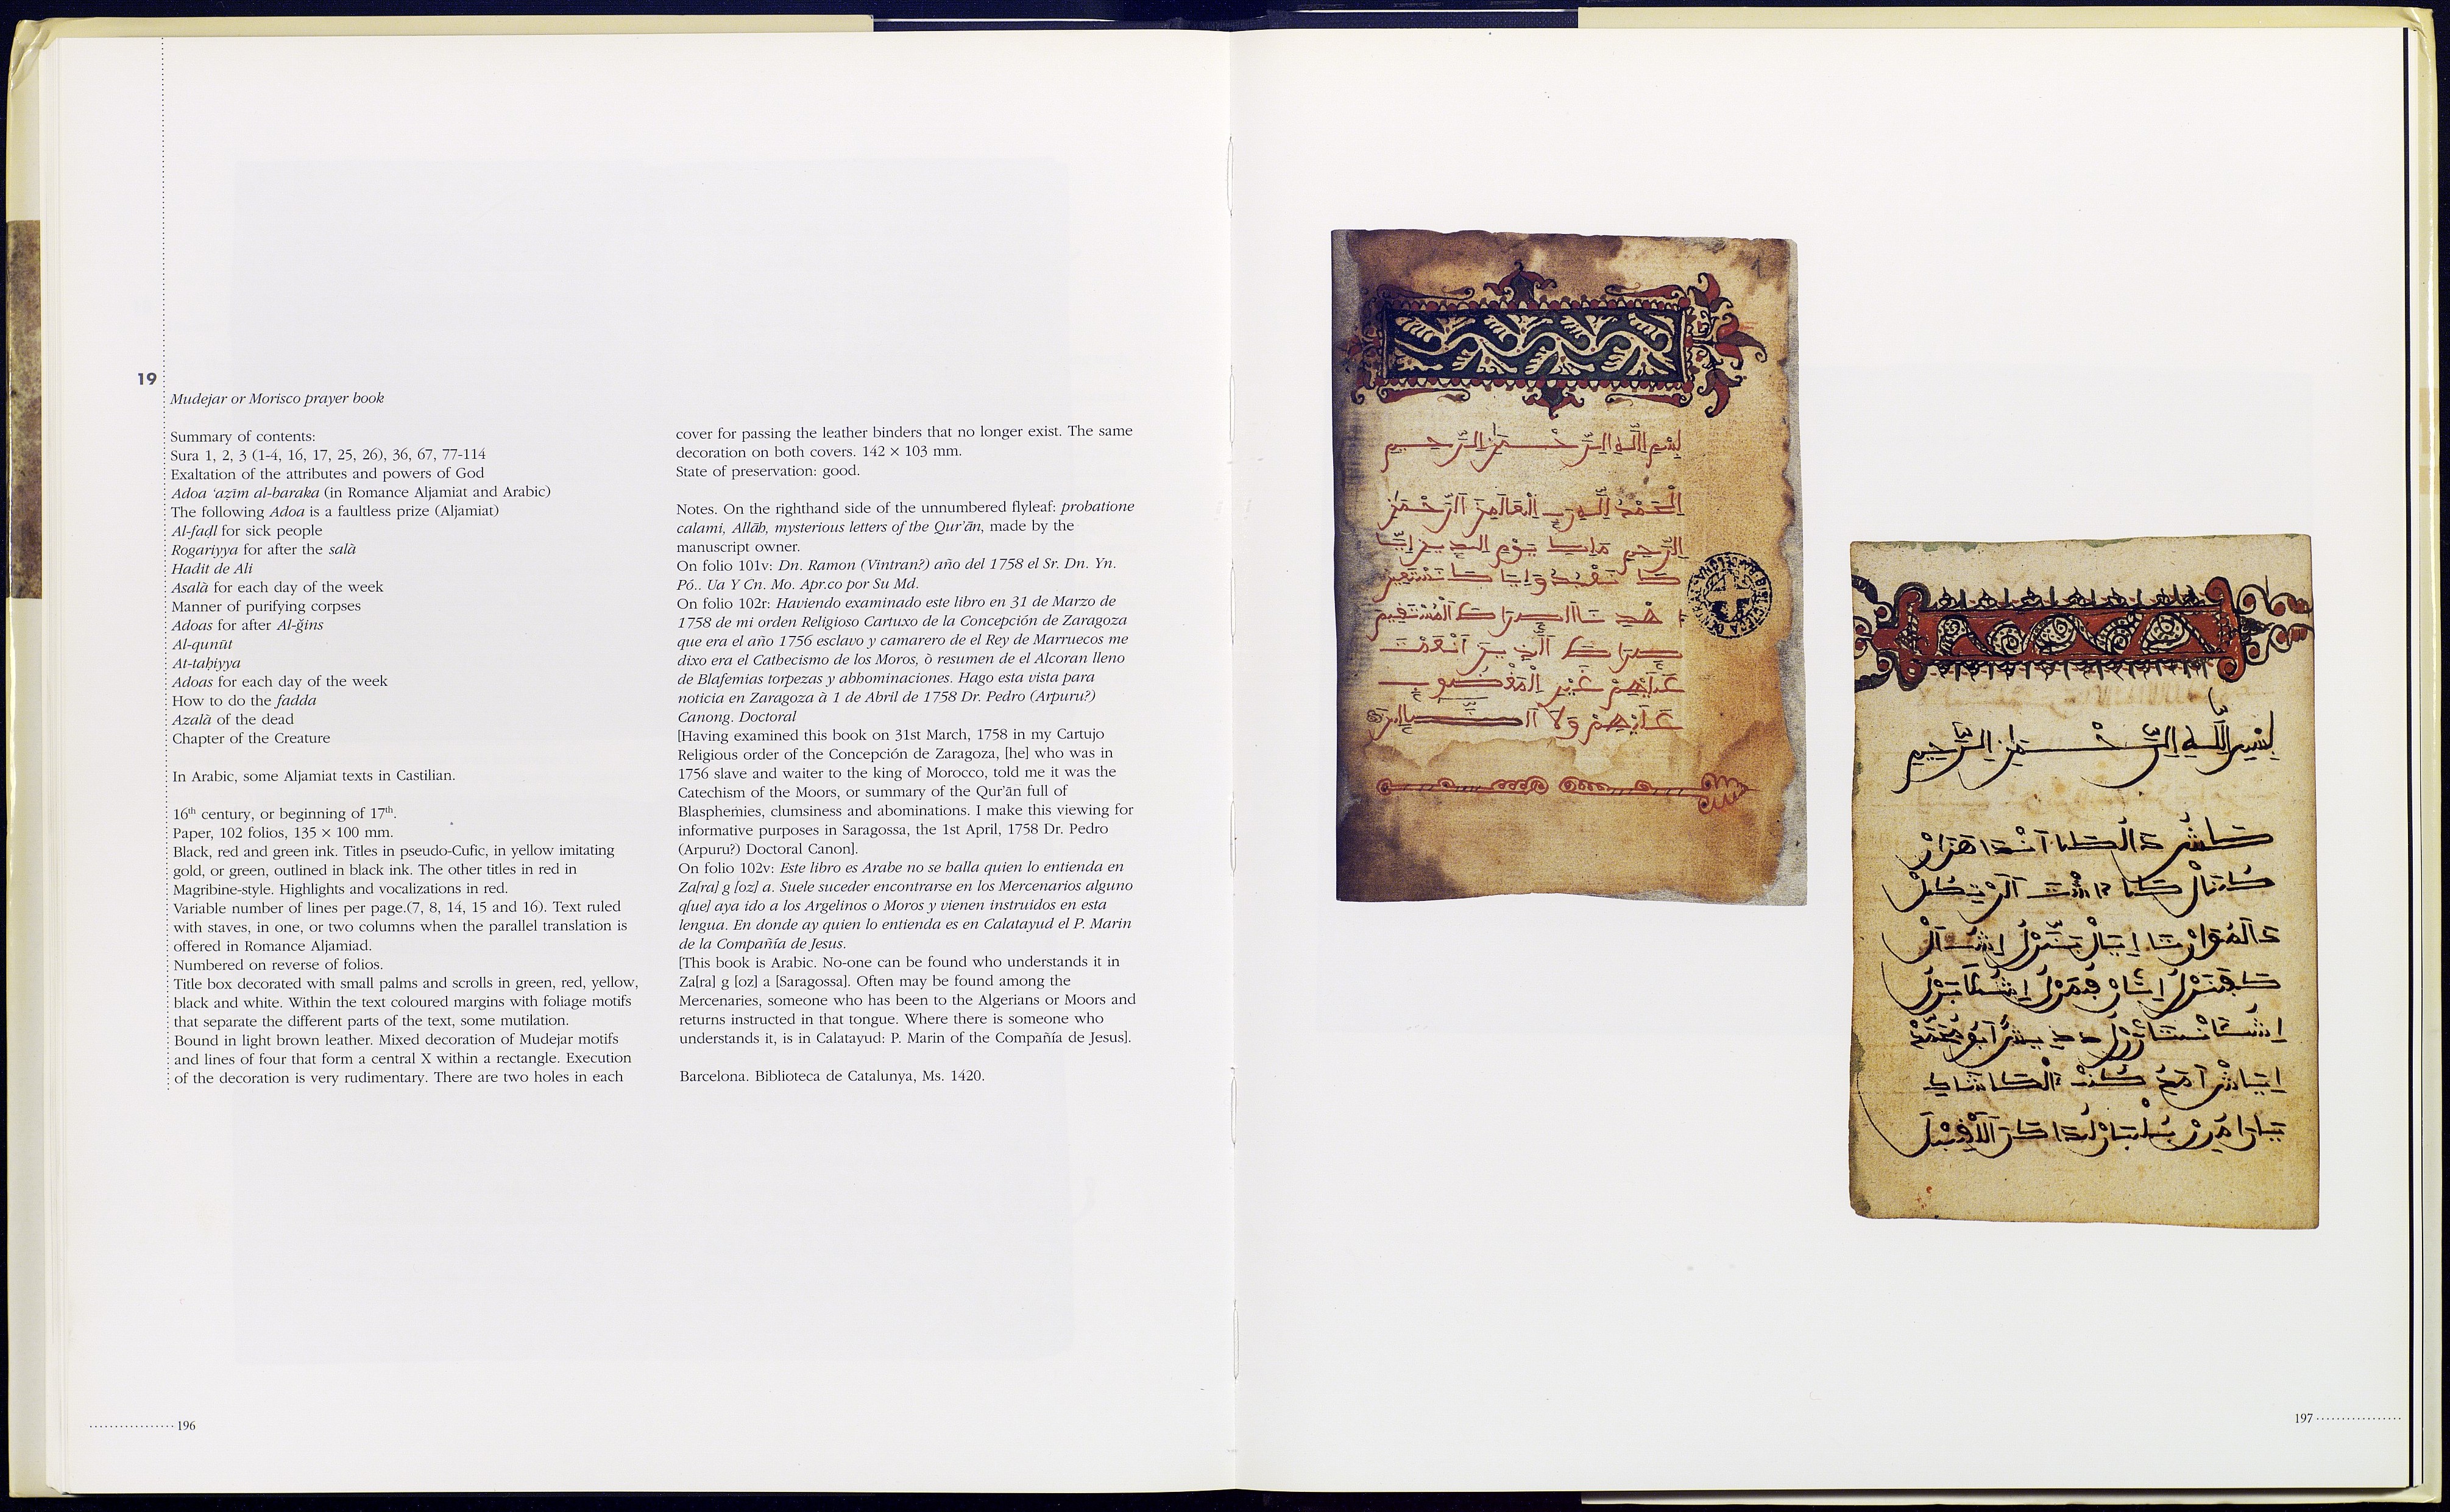 19
Mudejar or Morisco prayer book
Summary of contents:
Sura 1, 2, 3 (1-4, 16, 17, 25, 26), 36, 67, 77-114
Exaltation of the attributes and powers of God
Adoa ‘aẓīm al-baraka (in Romance Aljamiat and Arabic)
The following Adoa is a faultless prize (Aljamiat)
Al-faḍl for sick people
Rogariyya for after the salà
Hadit de Ali
Asalà for each day of the week
Manner of purifying corpses
Adoas for after Al-ğins
Al-qunūt
At-taḥiyya
Adoas for each day of the week
How to do the fadda
Azalà of the dead
Chapter of the Creature
In Arabic, some Aljamiat texts in Castilian.
16th century, or beginning of 17th.
Paper, 102 folios, 135 × 100 mm.
Black, red and green ink. Titles in pseudo-Cufic, in yellow imitating
gold, or green, outlined in black ink. The other titles in red in
Magribine-style. Highlights and vocalizations in red.
Variable number of lines per page.(7, 8, 14, 15 and 16). Text ruled
with staves, in one, or two columns when the parallel translation is
offered in Romance Aljamiad.
Numbered on reverse of folios.
Title box decorated with small palms and scrolls in green, red, yellow,
black and white. Within the text coloured margins with foliage motifs
that separate the different parts of the text, some mutilation.
Bound in light brown leather. Mixed decoration of Mudejar motifs
and lines of four that form a central X within a rectangle. Execution
of the decoration is very rudimentary. There are two holes in each
cover for passing the leather binders that no longer exist. The same
decoration on both covers. 142 × 103 mm.
State of preservation: good.
Notes. On the righthand side of the unnumbered flyleaf: probatione
calami, Allāh, mysterious letters of the Qur’ān, made by the
manuscript owner.
On folio 101v: Dn. Ramon (Vintran?) año del 1758 el Sr. Dn. Yn.
Pó.. Ua Y Cn. Mo. Apr.co por Su Md.
On folio 102r: Haviendo examinado este libro en 31 de Marzo de
1758 de mi orden Religioso Cartuxo de la Concepción de Zaragoza
que era el año 1756 esclavo y camarero de el Rey de Marruecos me
dixo era el Cathecismo de los Moros, ò resumen de el Alcoran lleno
de Blafemias torpezas y abhominaciones. Hago esta vista para
noticia en Zaragoza à 1 de Abril de 1758 Dr. Pedro (Arpuru?)
Canong. Doctoral
[Having examined this book on 31st March, 1758 in my Cartujo
Religious order of the Concepción de Zaragoza, [he] who was in
1756 slave and waiter to the king of Morocco, told me it was the
Catechism of the Moors, or summary of the Qur’ān full of
Blasphemies, clumsiness and abominations. I make this viewing for
informative purposes in Saragossa, the 1st April, 1758 Dr. Pedro
(Arpuru?) Doctoral Canon].
On folio 102v: Este libro es Arabe no se halla quien lo entienda en
Za[ra] g [oz] a. Suele suceder encontrarse en los Mercenarios alguno
q[ue] aya ido a los Argelinos o Moros y vienen instruidos en esta
lengua. En donde ay quien lo entienda es en Calatayud el P. Marin
de la Compañía de Jesus.
[This book is Arabic. No-one can be found who understands it in
Za[ra] g [oz] a [Saragossa]. Often may be found among the
Mercenaries, someone who has been to the Algerians or Moors and
returns instructed in that tongue. Where there is someone who
understands it, is in Calatayud: P. Marin of the Compañía de Jesus].
Barcelona. Biblioteca de Catalunya, Ms. 1420.
196
1
بسم الله الرحمن الرحيم
الحمد لله رب العالمين الرحمن
الرحيم ملك يوم الدين إيا
ك نعبد وإياك نستعين
اهدنا الصراط المستقيم
صراط الذين أنعمت
عليهم غير المغضوب
عليهم ولا الضالين
بسم الله الرحمن الرحيم
197